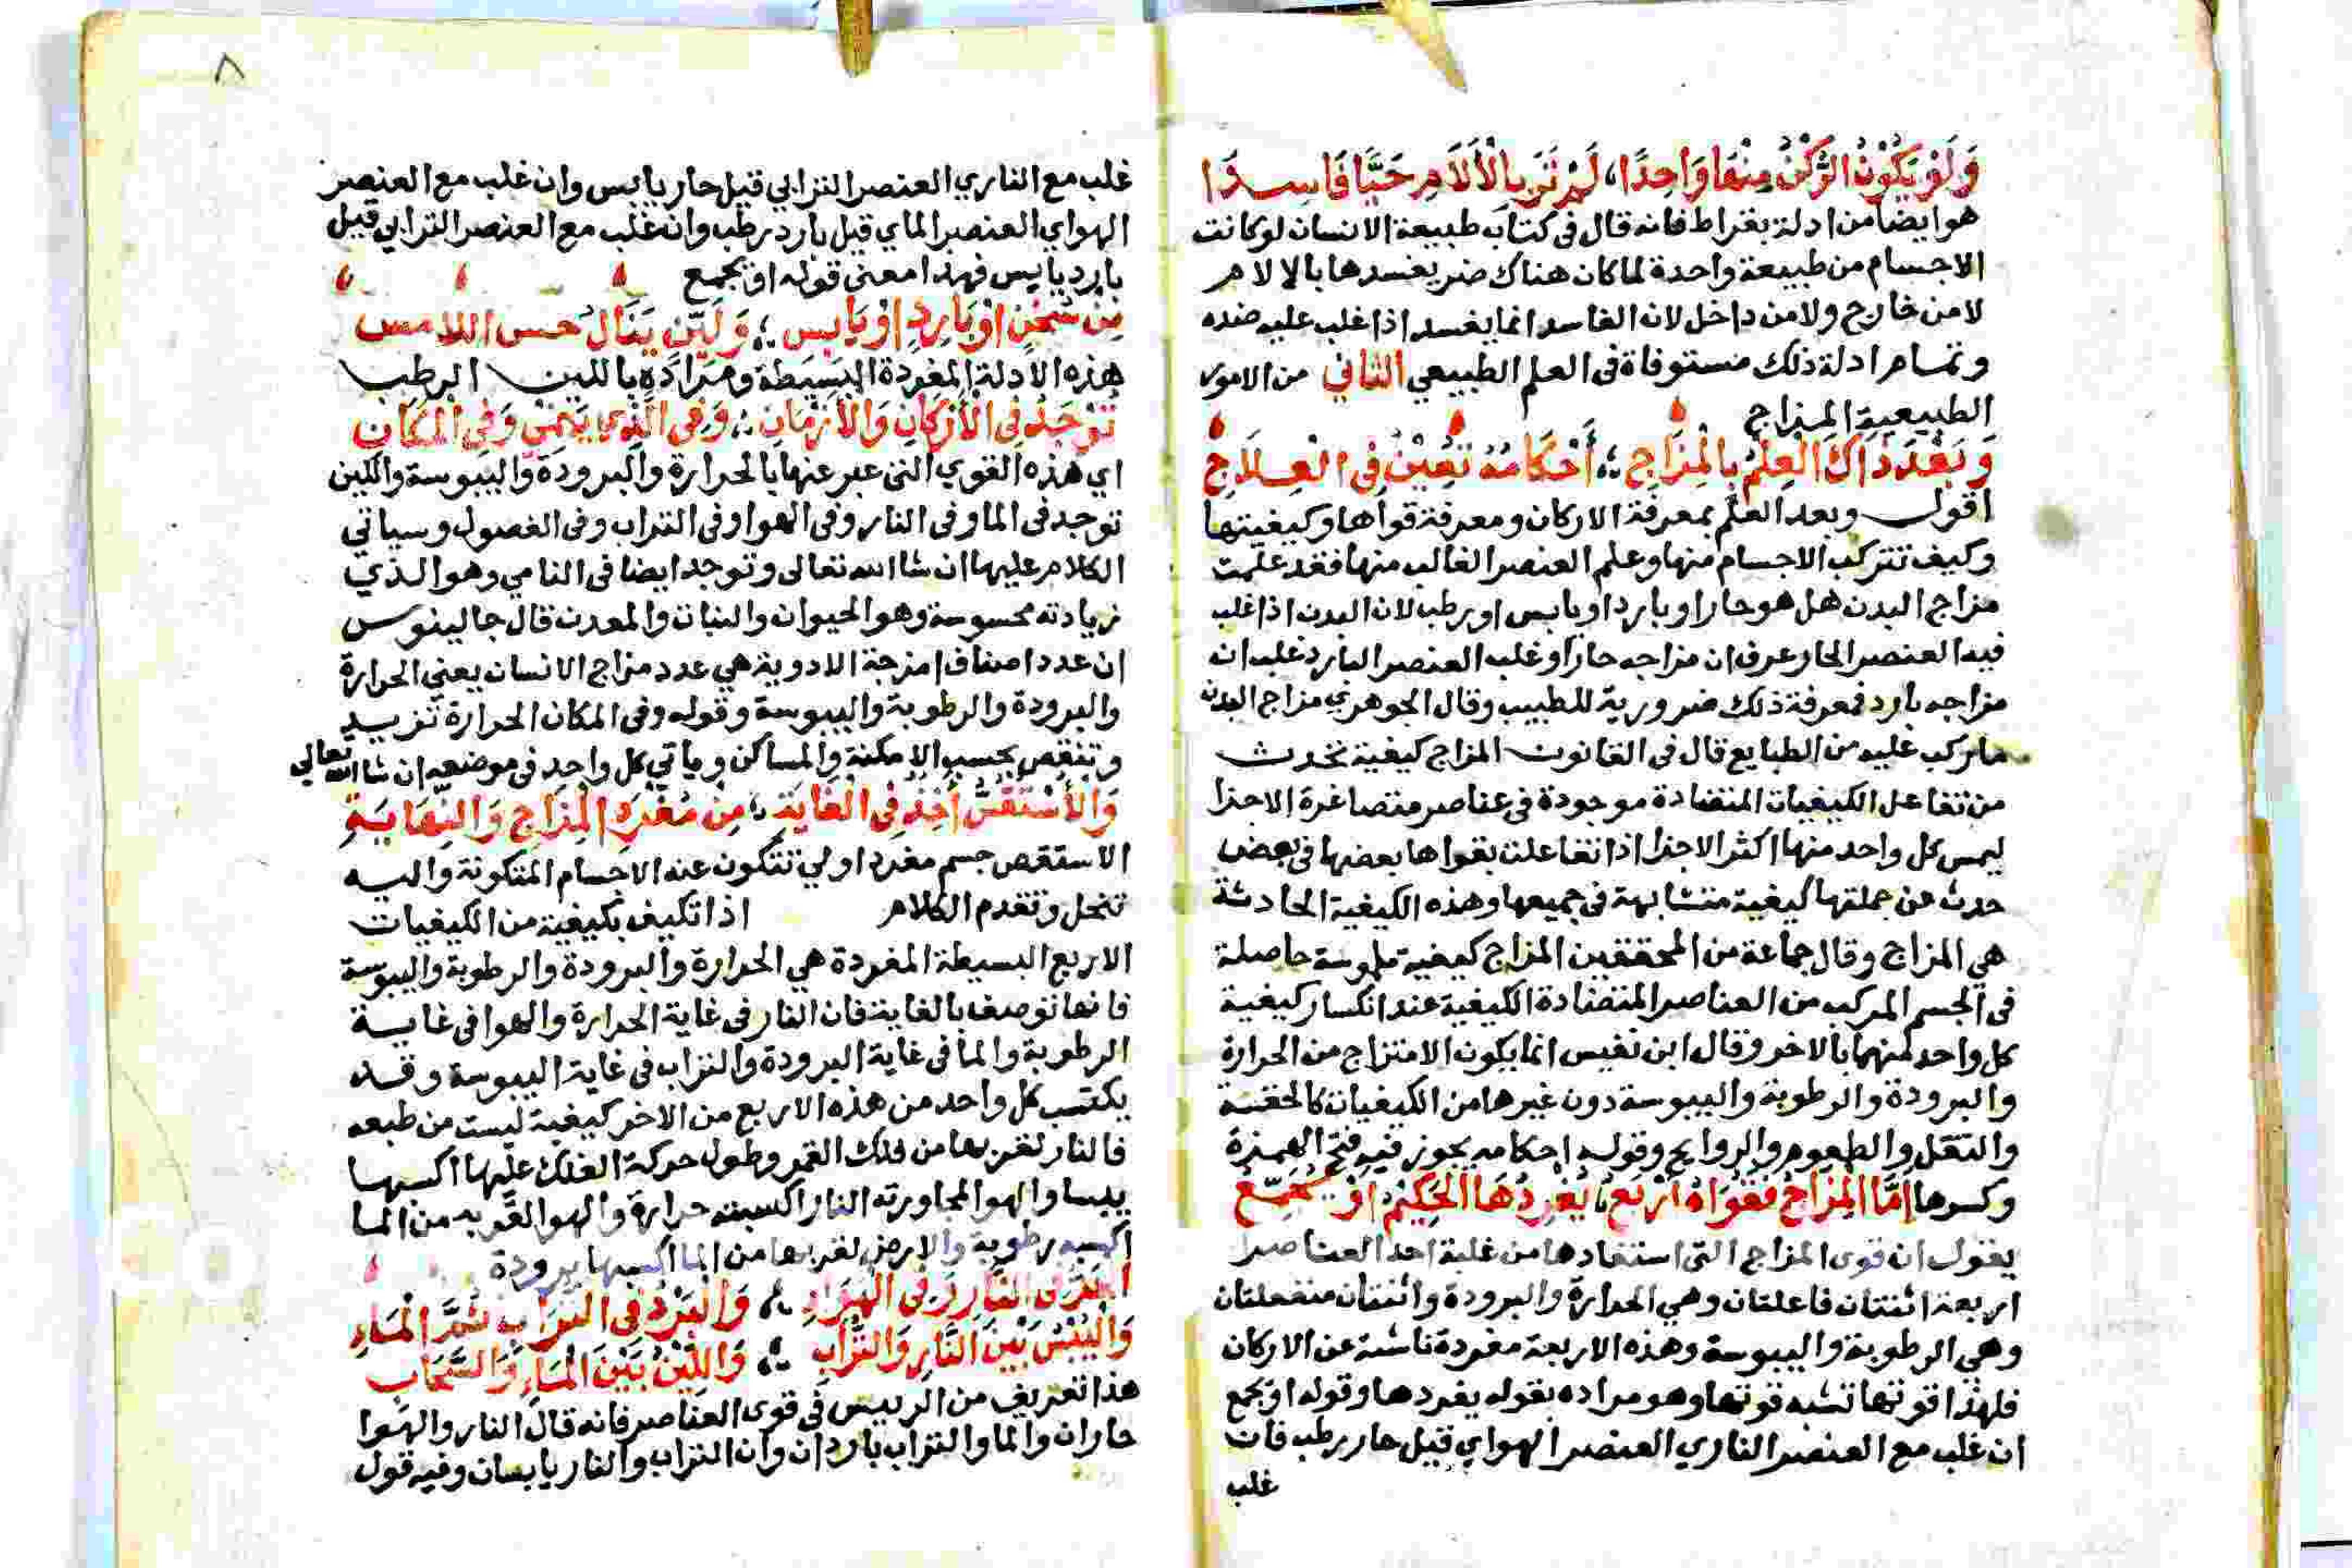 وَلَوْ يَكُوْنُ الرُّكْنُ مِنْهَا وَاحِدًا، لَمْ تَرَ بِالْآلَامِ حَيًّا فَاسِدَا
هو ايضا من ادلة بقراط فانه قال فى كتاب طبيعة الانسان لو كانت
الاجسام من طبيعة واحدة لما كان هناك ضر يفسدها بالالام
لا من خارج ولا من داخل لان الفاسد انما يفسد اذا غلب عليه ضده
وتمام ادلة ذلك مستوفاة فى العلم الطبيعي الثاني من الامور
الطبيعية المزاج
وَبَعْدَ ذَاكَ الْعِلْمُ بِالْمِزَاجِ ؛ أَحْكَامُهُ تُعِيْنُ فِى الْعِلَاجِ
اقول وبعد العلم بمعرفة الاركان ومعرفة قواها وكيفيتها
وكيف تتركب الاجسام منها وعلم العنصر الغالب منها فقد علمت
مزاج البدن هل هو حار او بارد او يابس او رطب لان البدن اذا غلب
فيه العنصر الحار عرف ان مزاجه حار او غلب العنصر البارد غلب ان
مزاجه بارد فمعرفة ذلك ضرورية للطبيب وقال الجوهري مزاج البدن
ما ركب عليه من الطبايع قال فى القانون المزاج كيفية تحدث
من تفاعل الكيفيات المتضادة موجودة فى عناصر متصاغرة الاجزا
ليمس كل واحد منها اكثر الاجزا اذا تفاعلت بقواها بعضها فى بعض
حدث عن جملتها كيفية متشابهة فى جميعها وهذه الكيفية الحادثة
هي المزاج وقال جماعة من المحققين المزاج كيفية ملموسة حاصلة
فى الجسم المركب من العناصر المتضادة الكيفية عند انكسار كيفية
كل واحد منهما بالاخر وقال ابن نفيس انما يكون الامتزاج من الحرارة
والبرودة والرطوبة واليبوسة دون غيرها من الكيفيات كالخفة
والثقل والطعوم والروايح وقوله احكامه يجوز فيه فتح الهمزة
وكسرها اِمَّا الْمِزَاجُ فَقُوَاهُ اَرْبَعُ، يُفْرِدُهَا الْحَكِيْمُ اَوْ يُجَمِّعُ
يقول ان قوى المزاج التى استفادها من غلبة احد العناصر
اربعة اثنتان فاعلتان وهي الحرارة والبرودة واثنتان منفعلتان
وهي الرطوبة واليبوسة وهذه الاربعة مفردة ناشئة عن الاركان
فلهذا قوتها تشبه قوتها وهو مراده بقوله يفردها وقوله او يجمع
ان غلب مع العنصر الناري العنصر الهواي قيل حار رطب فان
غلب
٨
غلب مع الناري العنصر الترابي قيل حار يابس وان غلب مع العنصر
الهواي العنصر الماي قيل بارد رطب وان غلب مع العنصر الترابي قيل
بارد يابس فهذا معنى قوله او يجمع
مِنْ سُخُنٍ اَوْ بَارِدٍ اَوْ يَابِسِ ؛ وَلَيِّنٍ يَنَالُ حس اللامس
هذه الادلة المفردة البسيطة ومراده باللين الرطب
تُوْجَدُ فِى الْأَرْكَانِ وَالْأَزْمَانِ ؛ وَفِى الَّذِي يَنْمِىْ وَفِى الْمَكَانِ
اي هذه القوي التى عبر عنها بالحرارة والبرودة واليبوسة واللين
توجد فى الما وفى النار وفى الهوا وفى التراب وفى الفصول وسياتي
الكلام عليها ان شا الله تعالى وتوجد ايضا فى النامي وهو الذي
زيادته محسوسة وهو الحيوان والنبات والمعدن قال جالينوس
ان عدد اصناف امزجة الادوية هي عدد مزاج الانسان يعني الحرارة
والبرودة والرطوبة واليبوسة وقوله وفى المكان الحرارة تزيد
وتنقص بحسب الامكنة والمساكن وياتي كل واحد فى موضعه ان شا الله تعالى
وَالْأُسْتَقَسُّ أَخْذُ فِى الْغَايَة ؛ مِنْ مُفْرَدِ الْمِزَاجِ وَالنِّهَايَةِ
الاستقص جسم مفرد اولي تتكون عنه الاجسام المتكونة واليه
تنحل وتقدم الكلام اذا تكيف بكيفية من الكيفيات
الاربع البسيطة المفردة هي الحرارة والبرودة والرطوبة واليبوسة
فانها توصف بالغاية فان النار فى غاية الحرارة والهوا فى غاية
الرطوبة والما فى غاية البرودة والتراب فى غاية اليبوسة وقد
يكتسب كل واحد من هذه الاربع من الاخر كيفية ليست من طبعه
فالنار لقربها من فلك القمر وطول حركة الفلك عليها اكسبها
يبسا والهوا لمجاورته النار اكسبته حرارة والهوا لقربه من الما
اكسبه رطوبة والارض لقربها من الما اكسبها برودة
الْحَرُّ فى النَّارِ وَفِى الْهَوَاءِ ؛ وَالْبَرْدُ فِى التُّرَابِ ثُمَّ الْمَاءِ
وَالْيُبْسُ بَيْنَ النَّارِ وَالتُّرَابِ ؛ وَاللِّيْنُ بَيْنَ الْمَاءِ وَالسَّحَابِ
هذا تعريف من الرييس فى قوى العناصر فانه قال النار والهوا
حاران والما والتراب باردان وان التراب والنار يابسان وفيه قول